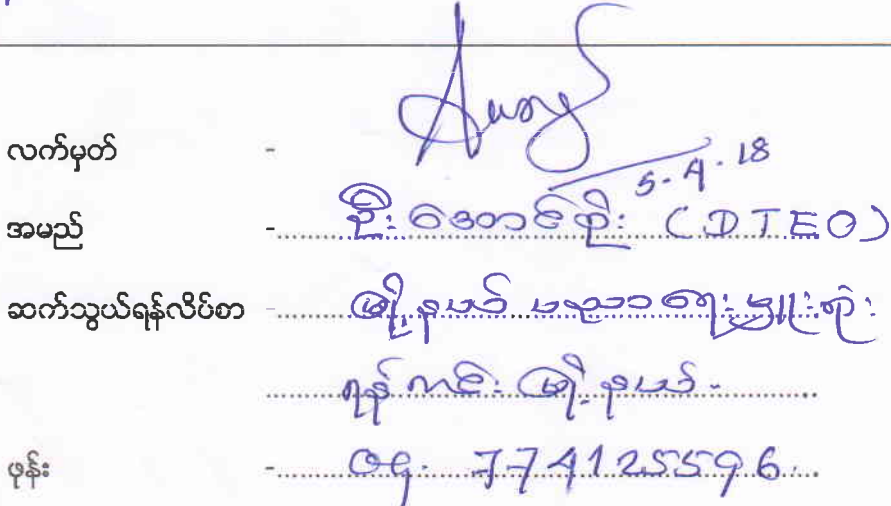 လက်မှတ် -
5.4.18
အမည် - ဦးအောင်စိုး (DTEO)
ဆက်သွယ်ရန်လိပ်စာ - မြို့နယ် ပညာရေးမှူးရုံး
ရန်ကင်းမြို့နယ်-
ဖုန်း - 09. 774125596